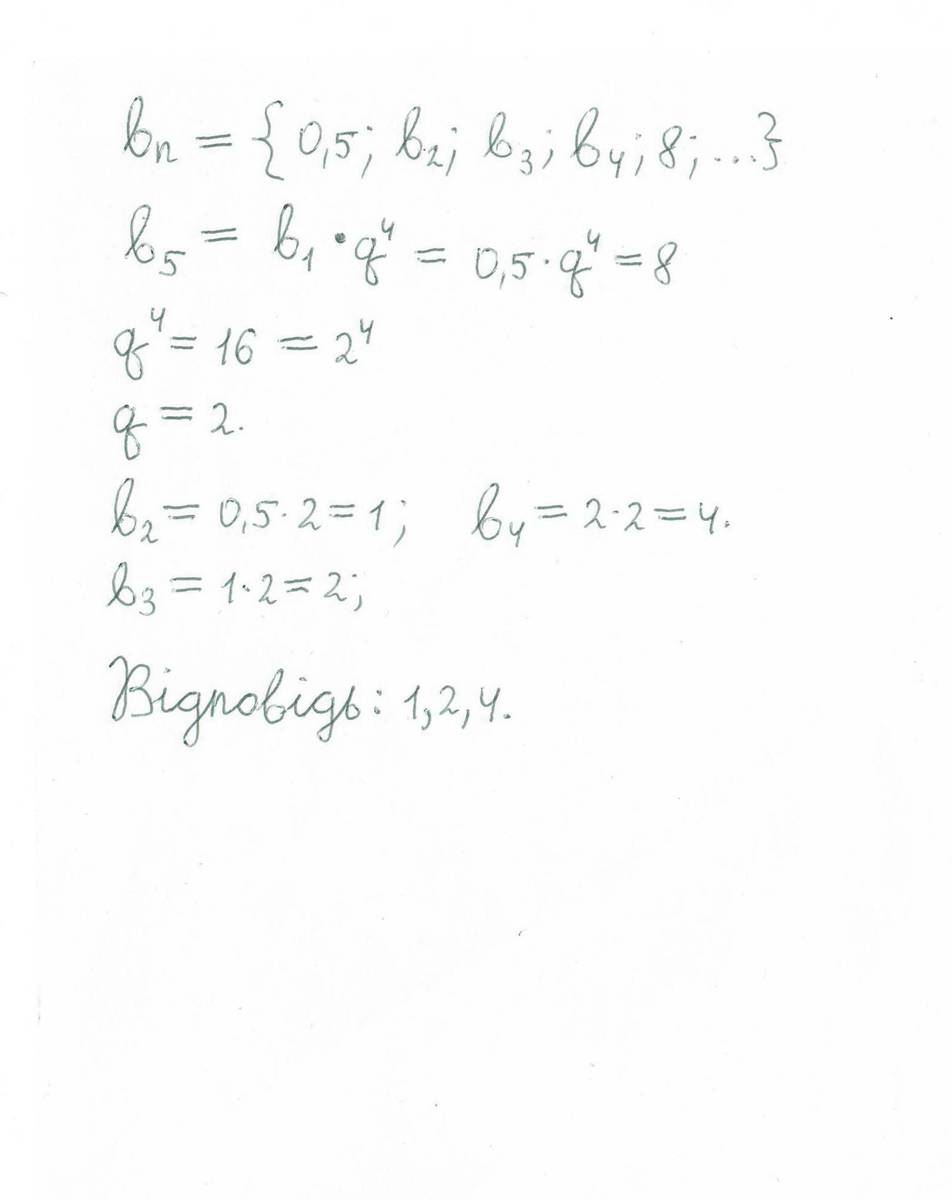 bₙ = {0,5; b₂; b₃; b₄; 8; ...}
b₅ = b₁ · q⁴ = 0,5 · q⁴ = 8
q⁴ = 16 = 2⁴
q = 2.
b₂ = 0,5 · 2 = 1; b₄ = 2 · 2 = 4.
b₃ = 1 · 2 = 2;
Відповідь: 1, 2, 4.